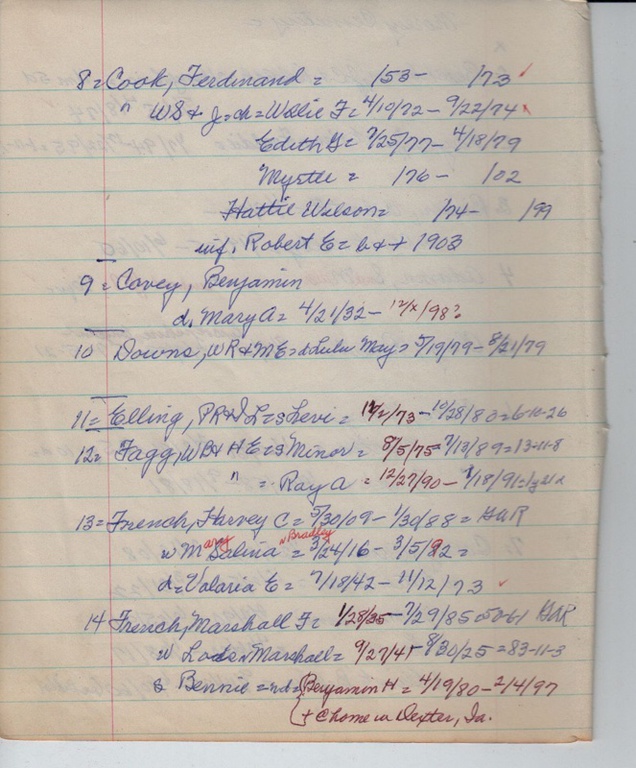 8= Cook, Ferdinand = /53- /73 ✓
" WS & J=ch=Willie F= 4/10/72 - 9/22/74
Edith G= 7/25/77- 4/18/79
Myrtle = /76- /02
Hattie Wilson= /74- /99
inf. Robert E= b&+ 1903
9= Covey, Benjamin
d. Mary A= 4/21/32- 12/x/98?
10 Downs, WR & ME=d Lulu May= 5/19/79- 8/21/79
11= Elling, PR& L=s Levi = 12/2/73-10/28/80=6-10-26
12= Fagg, WB& HE=s Minor= 8/5/75= 7/13/89=13-11-8
" = Ray A = 12/27/90- /18/91=
13= French, Harvey C= 5/30/09- 1/30/88= GAR
w Mary Salina w Bradley = 3/24/16- 3/5/92=
d=Valaria E= 7/18/42- 11/12/73 ✓
14 French, Marshall F= 1/28/35- 7/29/85 GAR
w Marshall= 9/27/41- 8/30/25=83-11-3
& Bennie = Benjamin H= 4/19/80-2/4/97
+ C home in Dexter, Ia.